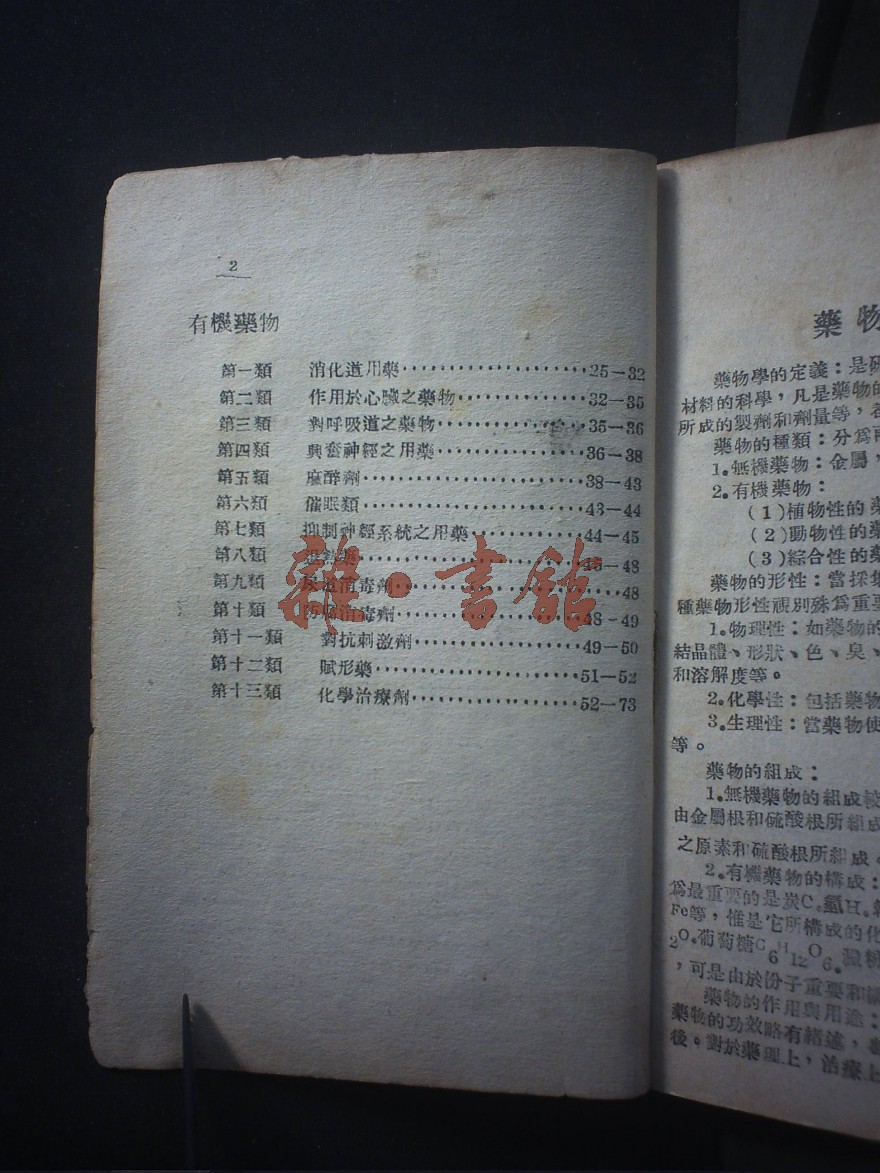 2
有機藥物
第一類 消化道用藥··················25—32
第二類 作用於心臟之藥物·············32—35
第三類 對呼吸道之藥物···············35—36
第四類 興奮神經之用藥···············36—38
第五類 麻醉劑······················38—43
第六類 催眠類······················43—44
第七類 抑制神經系統之用藥···········44—45
第八類 48
第九類 尿道消毒劑 48
第十類 消毒劑 48-49
第十一類 對抗刺激劑·················49—50
第十二類 賦形藥····················51—52
第十三類 化學治療劑·················52—73
雜·書館
藥物
藥物學的定義：是
材料的科學，凡是藥物的
所成的製劑和劑量等，
藥物的種類：分爲
1。無機藥物：金屬，
2。有機藥物：
(1)植物性的藥
(2)動物性的藥
(3)綜合性的藥
藥物的形性：當採集
種藥物形性視別殊爲重要
1。物理性：如藥物的
結晶體、形狀、色、臭、
和溶解度等。
2。化學性：包括藥物
3。生理性：當藥物使
等。
藥物的組成：
1。無機藥物的組成較
由金屬根和硫酸根所組成
之原素和硫酸根所組成。
2。有機藥物的構成：
爲最重要的是炭C。氫H。
Fe等，惟是它所構成的化
2O。葡萄糖C6H12O6。澱粉
，可是由於份子重要和
藥物的作用與用途：
藥物的功效略有緒述，
後。對於藥理上，治療上